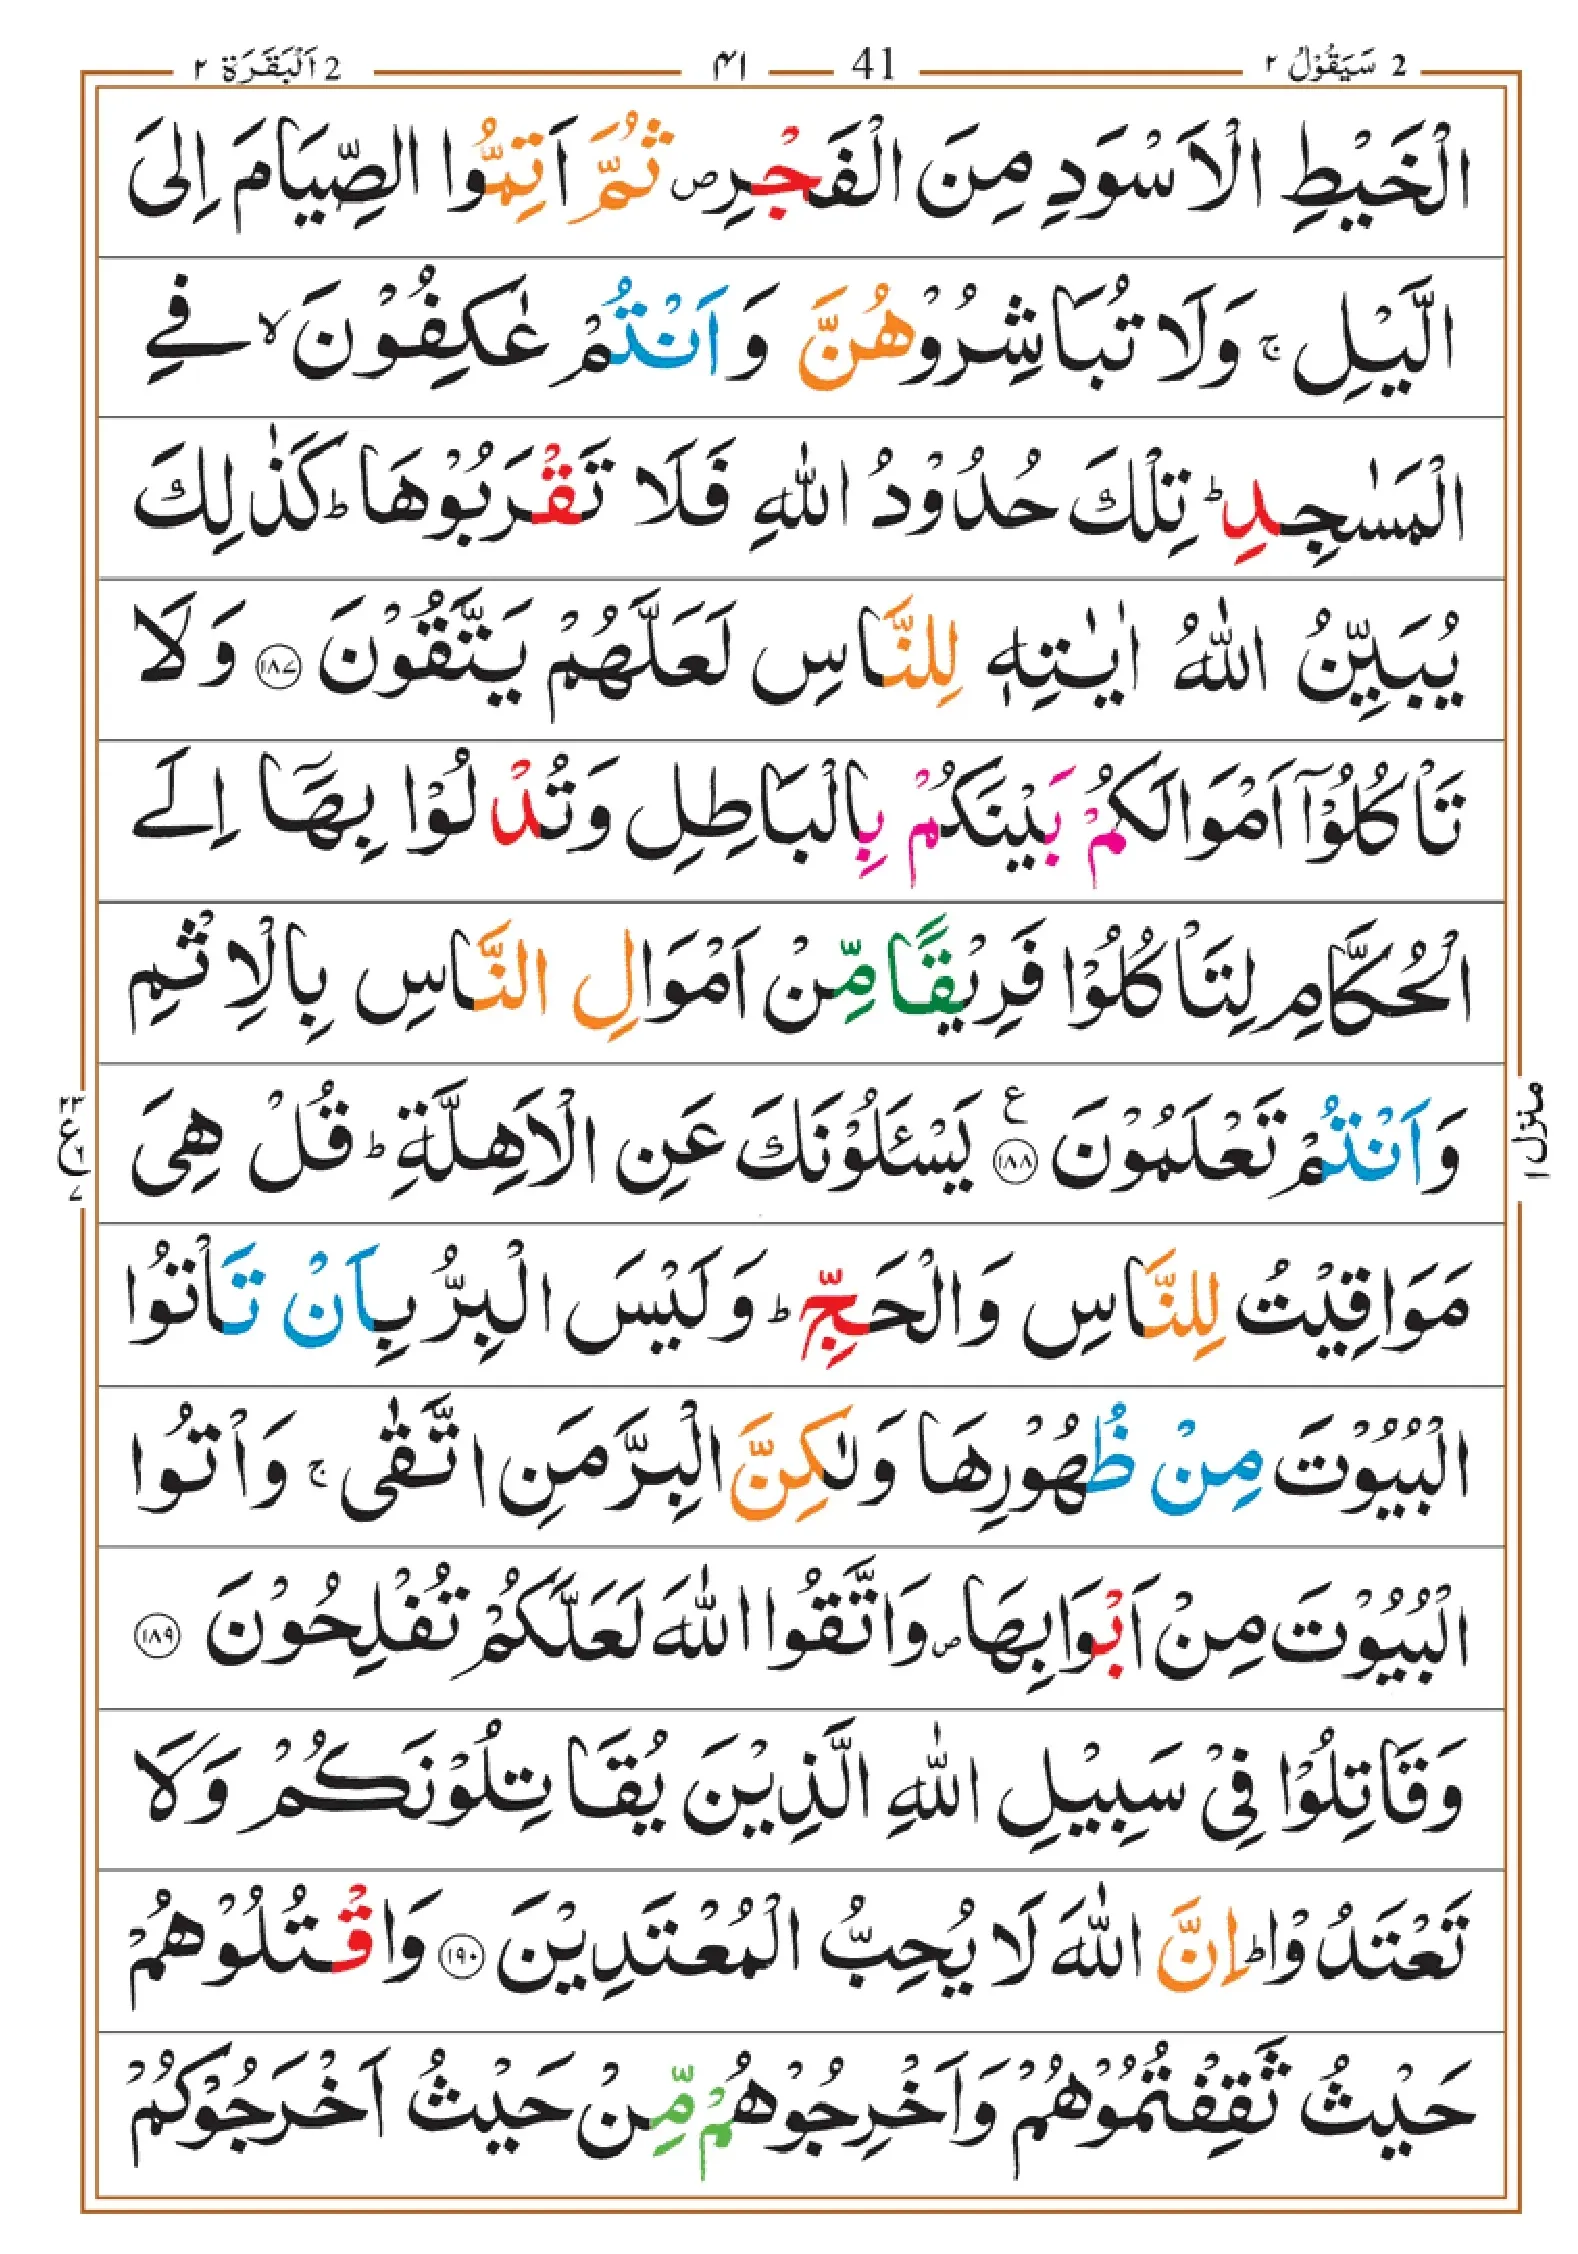 2 سَيَقُوْلُ ٢ 41 ٤١ 2 اَلْبَقَرَة ٢
الْخَيْطِ الْاَسْوَدِ مِنَ الْفَجْرِ ص ثُمَّ اَتِمُّوا الصِّيَامَ اِلَى
الَّيْلِ ج وَلَا تُبَاشِرُوْهُنَّ وَاَنْتُمْ عٰكِفُوْنَ لا فِي
الْمَسٰجِدِ ط تِلْكَ حُدُوْدُ اللّٰهِ فَلَا تَقْرَبُوْهَا ط كَذٰلِكَ
يُبَيِّنُ اللّٰهُ اٰيٰتِهٖ لِلنَّاسِ لَعَلَّهُمْ يَتَّقُوْنَ ١٨٧ وَلَا
تَاْكُلُوْٓا اَمْوَالَكُمْ بَيْنَكُمْ بِالْبَاطِلِ وَتُدْلُوْا بِهَآ اِلَى
الْحُكَّامِ لِتَاْكُلُوْا فَرِيْقًا مِّنْ اَمْوَالِ النَّاسِ بِالْاِثْمِ
وَاَنْتُمْ تَعْلَمُوْنَ ١٨٨ ع يَسْـَٔلُوْنَكَ عَنِ الْاَهِلَّةِ ط قُلْ هِيَ
٢٣ ع ٦ ٧
منزل ١
مَوَاقِيْتُ لِلنَّاسِ وَالْحَجِّ ط وَلَيْسَ الْبِرُّ بِاَنْ تَاْتُوا
الْبُيُوْتَ مِنْ ظُهُوْرِهَا وَلٰكِنَّ الْبِرَّ مَنِ اتَّقٰى ج وَاْتُوا
الْبُيُوْتَ مِنْ اَبْوَابِهَا ص وَاتَّقُوا اللّٰهَ لَعَلَّكُمْ تُفْلِحُوْنَ ١٨٩
وَقَاتِلُوْا فِيْ سَبِيْلِ اللّٰهِ الَّذِيْنَ يُقَاتِلُوْنَكُمْ وَلَا
تَعْتَدُوْا ط اِنَّ اللّٰهَ لَا يُحِبُّ الْمُعْتَدِيْنَ ١٩٠ وَاقْتُلُوْهُمْ
حَيْثُ ثَقِفْتُمُوْهُمْ وَاَخْرِجُوْهُمْ مِّنْ حَيْثُ اَخْرَجُوْكُمْ